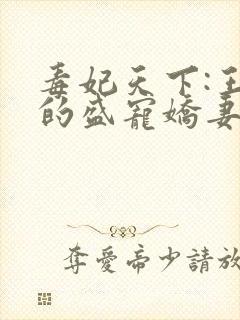 毒妃天下:王
的盛寵嬌妻
奪愛帝少請放